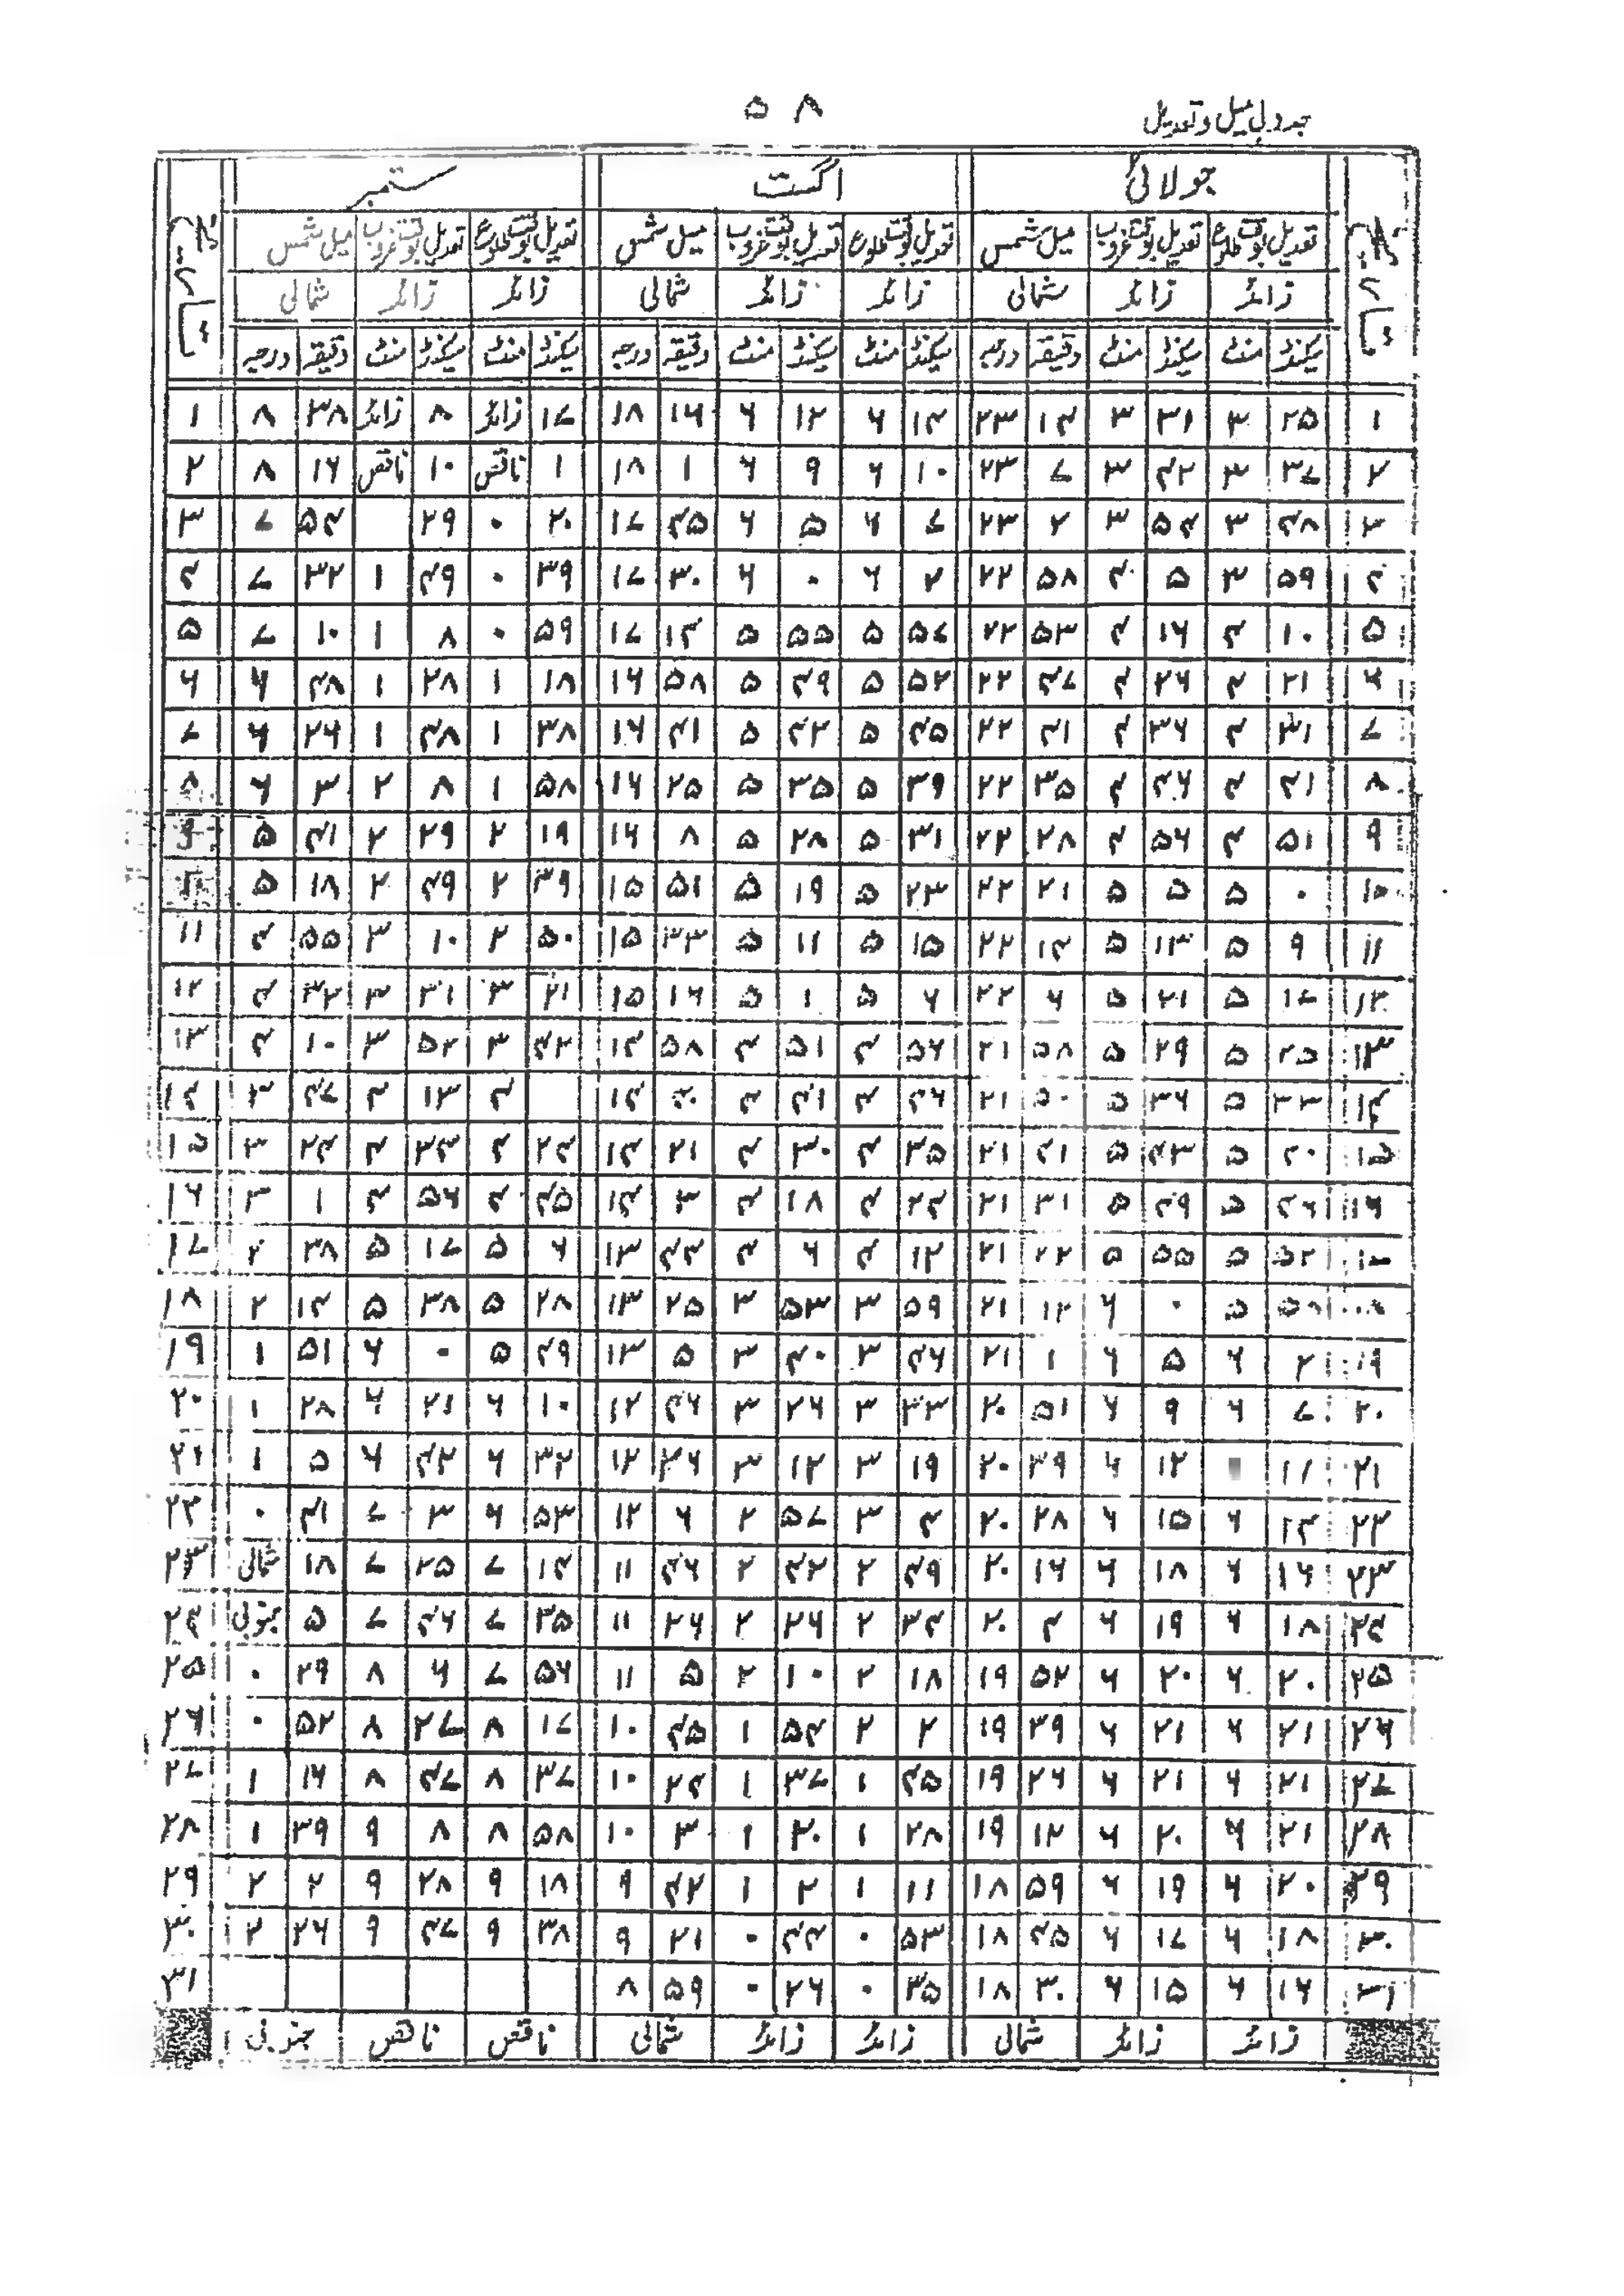 جدول میل و تعدیل
۵۸
جولائی اگست ستمبر
تعدیل بوقت طلوع تعدیل بوقت غروب میل شمس تعدیل بوقت طلوع تعدیل بوقت غروب میل شمس تعدیل بوقت طلوع تعدیل بوقت غروب میل شمس
زائد زائد شمالی زائد زائد شمالی زائد زائد شمالی
سیکنڈ منٹ سیکنڈ منٹ دقیقہ درجہ سیکنڈ منٹ سیکنڈ منٹ دقیقہ درجہ سیکنڈ منٹ سیکنڈ منٹ دقیقہ درجہ
۱ ۲۵ ۳ ۳۱ ۳ ۱۴ ۲۳ ۱۴ ۶ ۱۲ ۶ ۱۶ ۱۸ ۱۷ زائد ۸ زائد ۳۸ ۸ ۱
۲ ۳۷ ۳ ۴۲ ۳ ۷ ۲۳ ۱۰ ۶ ۹ ۶ ۱ ۱۸ ۱ ناقص ۱۰ ناقص ۱۶ ۸ ۲
۳ ۴۸ ۳ ۵۴ ۳ ۲ ۲۳ ۷ ۶ ۵ ۶ ۴۵ ۱۷ ۲۰ ۰ ۲۹ ۵۴ ۷ ۳
۴ ۵۹ ۳ ۵ ۴ ۵۸ ۲۲ ۲ ۶ ۰ ۶ ۳۰ ۱۷ ۳۹ ۰ ۴۹ ۱ ۳۲ ۷ ۴
۵ ۱۰ ۴ ۱۶ ۴ ۵۳ ۲۲ ۵۷ ۵ ۵۵ ۵ ۱۴ ۱۷ ۵۹ ۰ ۸ ۱ ۱۰ ۷ ۵
۶ ۲۱ ۴ ۲۶ ۴ ۴۷ ۲۲ ۵۲ ۵ ۴۹ ۵ ۵۸ ۱۶ ۱۸ ۱ ۲۸ ۱ ۴۸ ۶ ۶
۷ ۳۱ ۴ ۳۶ ۴ ۴۱ ۲۲ ۴۵ ۵ ۴۲ ۵ ۴۱ ۱۶ ۳۸ ۱ ۴۸ ۱ ۲۶ ۶ ۷
۸ ۴۱ ۴ ۴۶ ۴ ۳۵ ۲۲ ۳۹ ۵ ۳۵ ۵ ۲۵ ۱۶ ۵۸ ۱ ۸ ۲ ۳ ۶ ۸
۹ ۵۱ ۴ ۵۶ ۴ ۲۸ ۲۲ ۳۱ ۵ ۲۸ ۵ ۸ ۱۶ ۱۹ ۲ ۲۹ ۲ ۴۱ ۵ ۹
۱۰ ۰ ۵ ۵ ۵ ۲۱ ۲۲ ۲۳ ۵ ۱۹ ۵ ۵۱ ۱۵ ۳۹ ۲ ۴۹ ۲ ۱۸ ۵
۱۱ ۹ ۵ ۱۳ ۵ ۱۴ ۲۲ ۱۵ ۵ ۱۱ ۵ ۳۳ ۱۵ ۵۰ ۲ ۱۰ ۳ ۵۵ ۴ ۱۱
۱۲ ۱۷ ۵ ۲۱ ۵ ۶ ۲۲ ۶ ۵ ۱ ۵ ۱۶ ۱۵ ۲۱ ۳ ۳۱ ۳ ۳۲ ۴ ۱۲
۱۳ ۲۵ ۵ ۲۹ ۵ ۵۸ ۲۱ ۵۶ ۴ ۵۱ ۴ ۵۸ ۱۴ ۴۲ ۳ ۵۲ ۳ ۱۰ ۴ ۱۳
۱۴ ۳۳ ۵ ۳۶ ۵ ۵۰ ۲۱ ۴۶ ۴ ۴۱ ۴ ۴۰ ۱۴ ۴ ۱۳ ۴ ۴۷ ۳ ۱۴
۱۵ ۴۰ ۵ ۴۳ ۵ ۴۱ ۲۱ ۳۵ ۴ ۳۰ ۴ ۲۱ ۱۴ ۲۴ ۴ ۳۴ ۴ ۲۴ ۳ ۱۵
۱۶ ۴۶ ۵ ۴۹ ۵ ۳۱ ۲۱ ۲۴ ۴ ۱۸ ۴ ۳ ۱۴ ۴۵ ۴ ۵۶ ۴ ۱ ۳ ۱۶
۱۷ ۵۲ ۵ ۵۵ ۵ ۲۲ ۲۱ ۱۲ ۴ ۶ ۴ ۴۴ ۱۳ ۶ ۵ ۱۷ ۵ ۳۸ ۲ ۱۷
۵۸ ۵ ۰ ۶ ۱۲ ۲۱ ۵۹ ۳ ۵۳ ۳ ۲۵ ۱۳ ۲۸ ۵ ۳۸ ۵ ۱۴ ۲ ۱۸
۱۹ ۲ ۶ ۵ ۶ ۱ ۲۱ ۴۶ ۳ ۴۰ ۳ ۵ ۱۳ ۴۹ ۵ ۰ ۶ ۵۱ ۱ ۱۹
۲۰ ۷ ۶ ۹ ۶ ۵۱ ۲۰ ۳۳ ۳ ۲۶ ۳ ۴۶ ۱۲ ۱۰ ۶ ۲۱ ۶ ۲۸ ۱ ۲۰
۲۱ ۱۱ ۱۲ ۶ ۳۹ ۲۰ ۱۹ ۳ ۱۲ ۳ ۲۶ ۱۲ ۳۲ ۶ ۴۲ ۶ ۵ ۱ ۲۱
۲۲ ۱۴ ۶ ۱۵ ۶ ۲۸ ۲۰ ۴ ۳ ۵۷ ۲ ۶ ۱۲ ۵۳ ۶ ۳ ۷ ۴۱ ۰ ۲۲
۲۳ ۱۶ ۶ ۱۸ ۶ ۱۶ ۲۰ ۴۹ ۲ ۴۲ ۲ ۴۶ ۱۱ ۱۴ ۷ ۲۵ ۷ ۱۸ شمالی ۲۳
۲۴ ۱۸ ۶ ۱۹ ۶ ۴ ۲۰ ۳۴ ۲ ۲۶ ۲ ۲۶ ۱۱ ۳۵ ۷ ۴۶ ۷ ۵ جنوبی ۲۴
۲۵ ۲۰ ۶ ۲۰ ۶ ۵۲ ۱۹ ۱۸ ۲ ۱۰ ۲ ۵ ۱۱ ۵۶ ۷ ۶ ۸ ۲۹ ۰ ۲۵
۲۶ ۲۱ ۶ ۲۱ ۶ ۳۹ ۱۹ ۲ ۲ ۵۴ ۱ ۴۵ ۱۰ ۱۷ ۸ ۲۷ ۸ ۵۲ ۰ ۲۶
۲۷ ۲۱ ۶ ۲۱ ۶ ۲۶ ۱۹ ۴۵ ۱ ۳۷ ۱ ۲۴ ۱۰ ۳۷ ۸ ۴۷ ۸ ۱۶ ۱ ۲۷
۲۸ ۲۱ ۶ ۲۰ ۶ ۱۲ ۱۹ ۲۸ ۱ ۲۰ ۱ ۳ ۱۰ ۵۸ ۸ ۸ ۹ ۳۹ ۱ ۲۸
۲۹ ۲۰ ۶ ۱۹ ۶ ۵۹ ۱۸ ۱۱ ۱ ۲ ۱ ۴۲ ۹ ۱۸ ۹ ۲۸ ۹ ۲ ۲ ۲۹
۳۰ ۱۸ ۶ ۱۷ ۶ ۴۵ ۱۸ ۵۳ ۰ ۴۴ ۰ ۲۱ ۹ ۳۸ ۹ ۴۷ ۹ ۲۶ ۲ ۳۰
۳۱ ۱۶ ۶ ۱۵ ۶ ۳۰ ۱۸ ۳۵ ۰ ۲۶ ۰ ۵۹ ۸ ۳۱
زائد زائد شمالی زائد زائد شمالی ناقص ناقص جنوبی